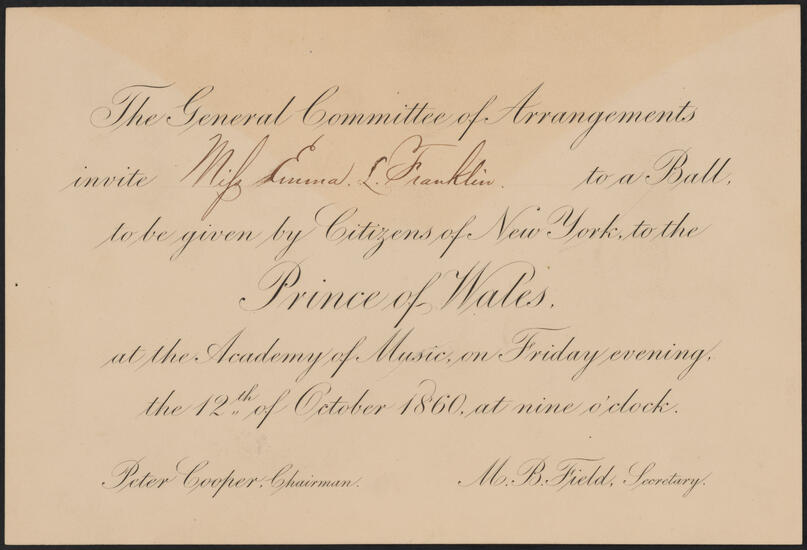 The General Committee of Arrangements
invite Miss Emma. L. Franklin. to a Ball,
to be given by Citizens of New York, to the
Prince of Wales,
at the Academy of Music, on Friday evening,
the 12th of October 1860, at nine o'clock.
Peter Cooper, Chairman. M. B. Field, Secretary.